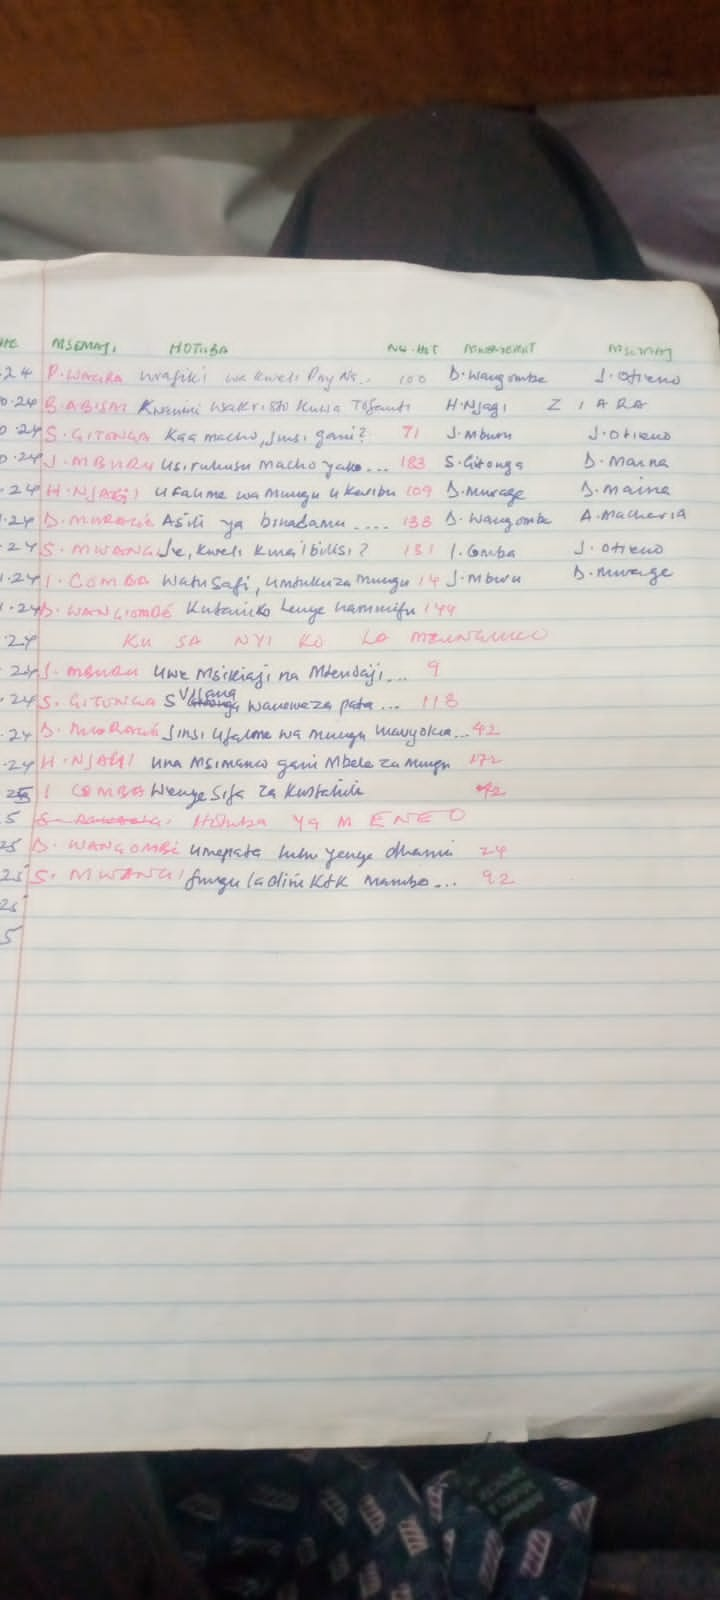 HE MSEMAJI HOTUBA NU. HOT MWENYEKITI MSOMAJI
.24 P. WAGURA Urafiki wa kweli 100 D. Wangombe J. Otieno
0.24 B. ABISAI Kwanini Wakristo Kuwa Tofauti H. Njagi Z I A R A
0.24 S. GITONGA Kaa macho, Jinsi gani? 71 J. Mburu J. Otieno
0.24 J. MBURU Usiruhusu Macho yako... 183 S. Gitonga D. Maina
.24 H. NJAGI Ufalme wa Mungu U Karibu 109 D. Murage D. Maina
.24 D. MURAGE Asili ya binadamu .... 138 D. Wangombe A. Macharia
.24 S. MWANGI Je, Kweli Kuna ibilisi? 151 I. Comba J. Otieno
1.24 I. COMBA Watu Safi, Umtukuza Mungu 14 J. Mburu D. Murage
1.24 D. WANGOMBE Kutaniko lenye 144
.24 KU SA NYI KO LA
.24 J. MBURU Uwe Msikiaji na Mtendaji... 9
.24 S. GITONGA Vijana wanaweza pata... 118
.24 D. MURAGE Jinsi Ufalme wa Mungu 42
.24 H. NJAGI Una Msimamo gani Mbele za Mungu 172
25 I COMBA Wenye Sifa za
5 Hotuba YA M ENEO
25 D. WANGOMBE Umepata tumu yenye 24
25 S. MWANGI fungu la dini KtK Mambo... 92
25
5